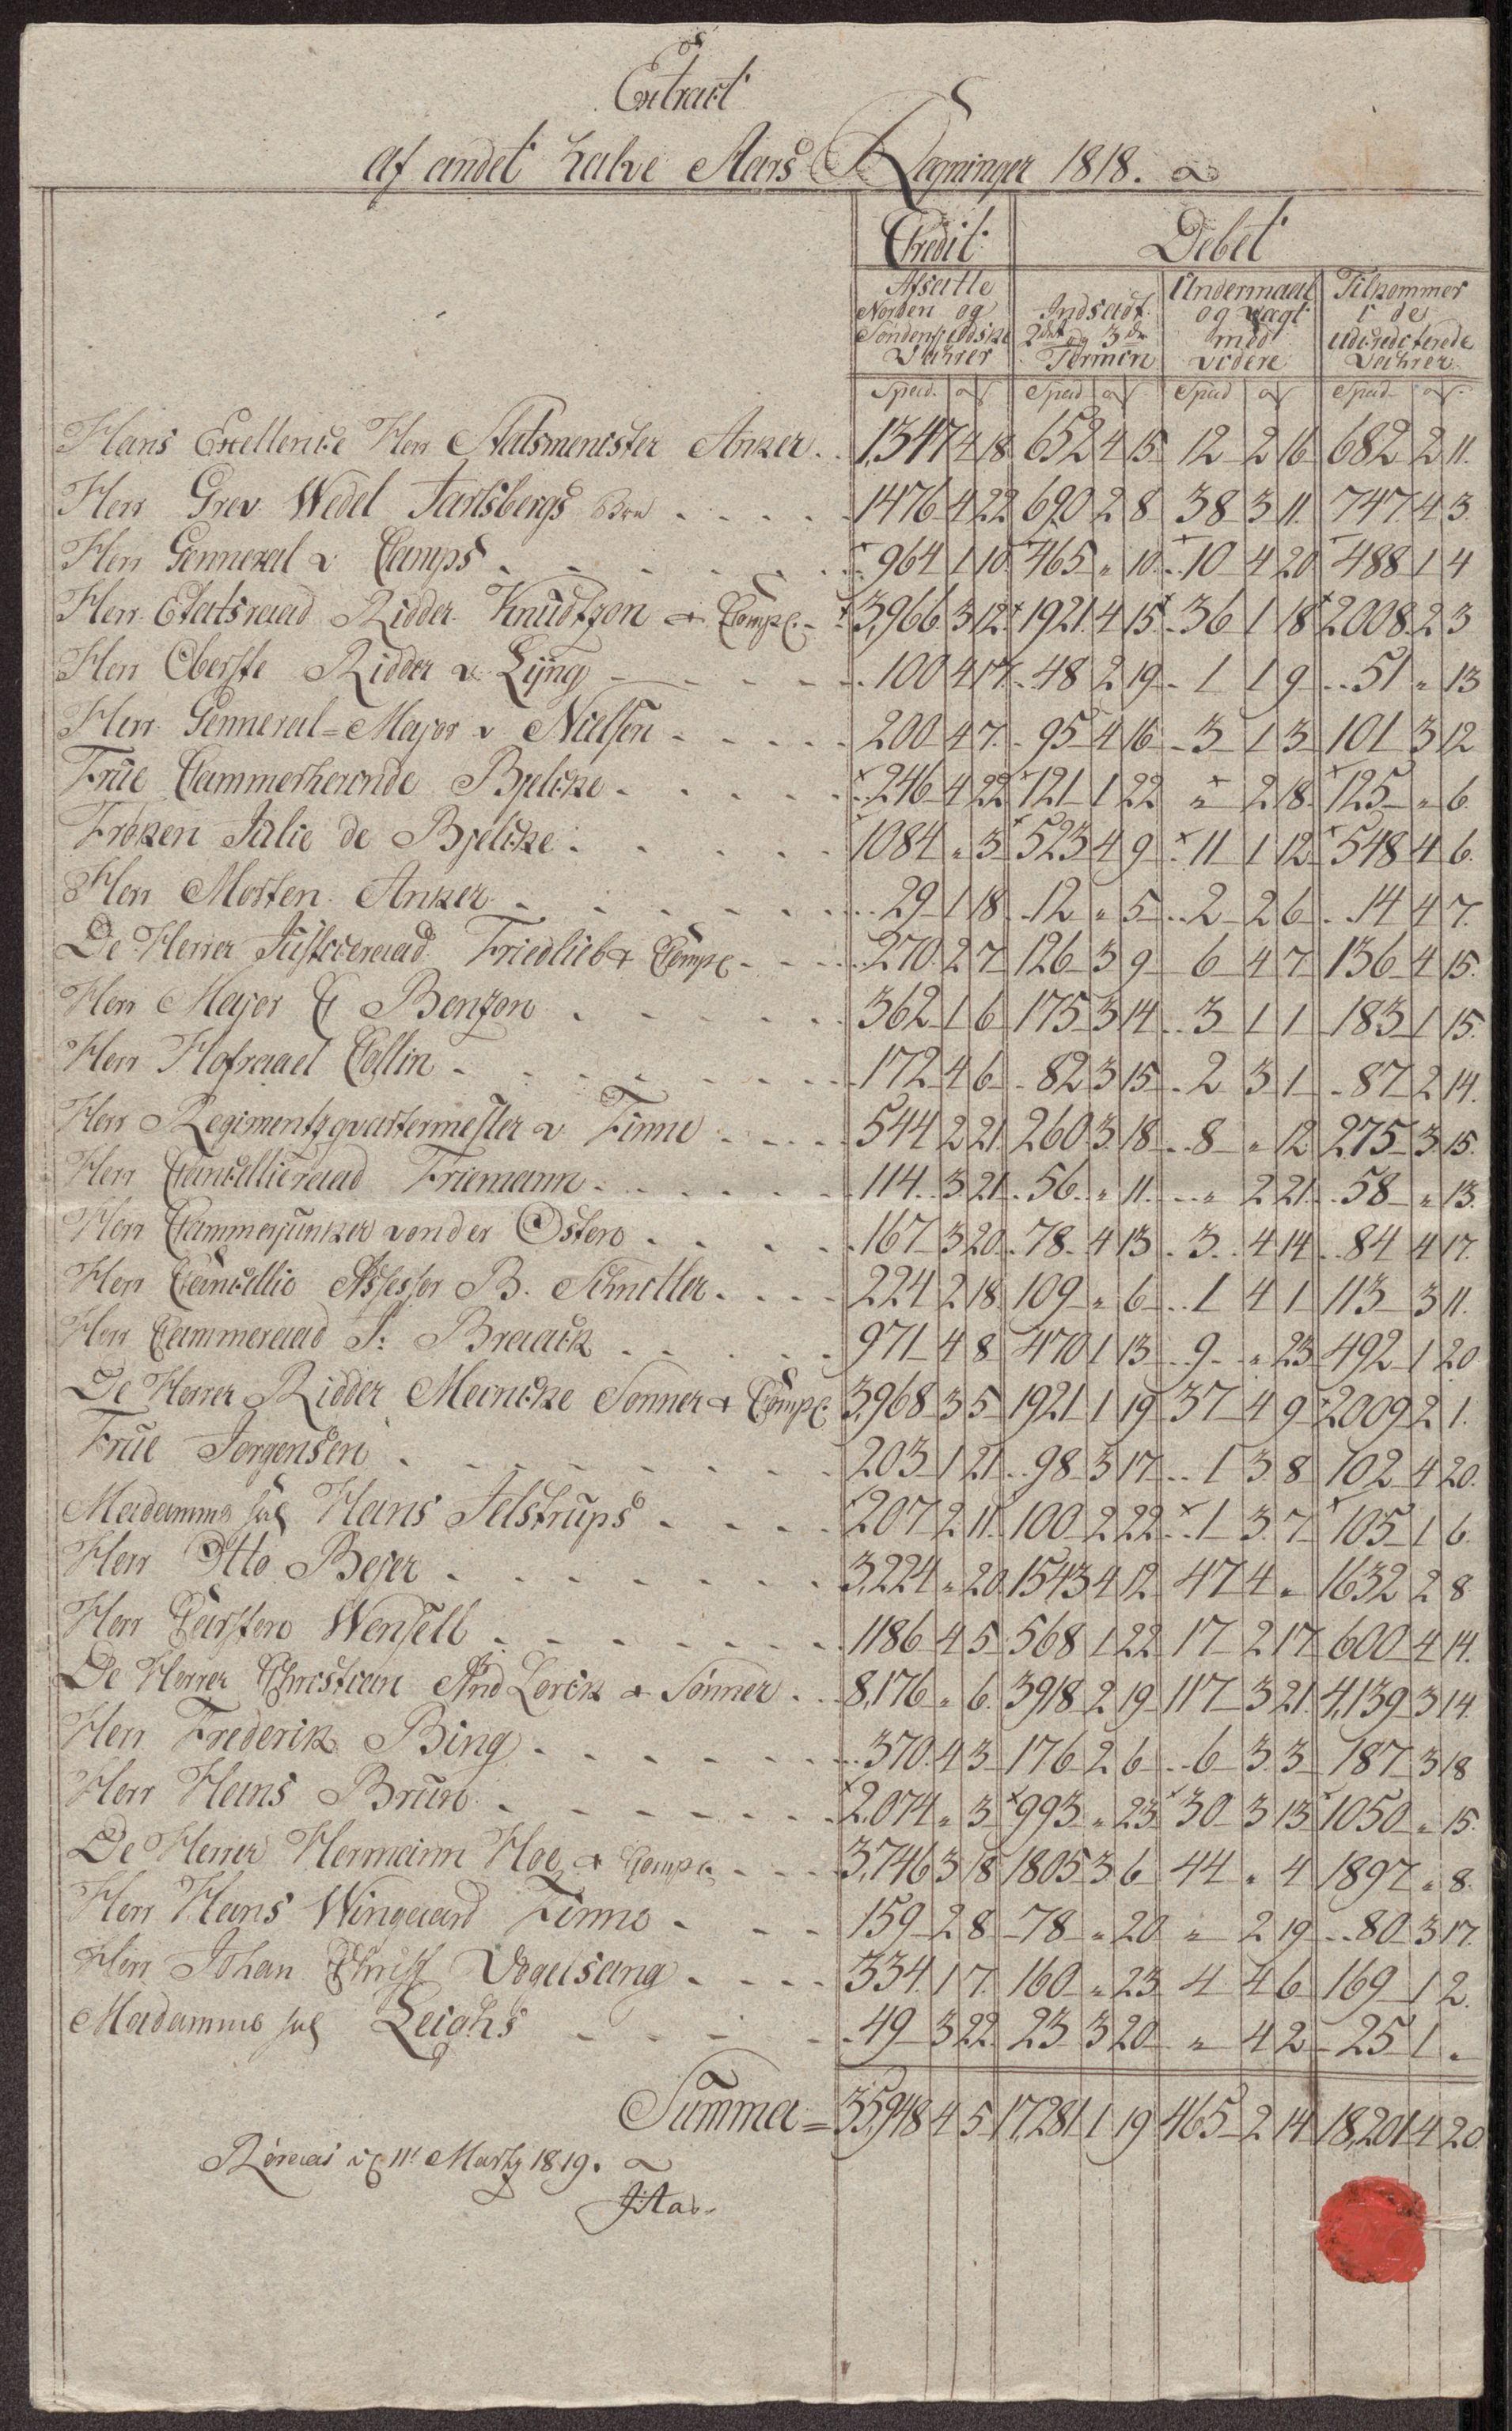 Extract
af andet halve Aars Regninger 1818.
Credit Debet
Afsatte Norden og Søndenfieldske Vahrer
Indsadt 2det og 3die Termin
Undermaal og vægt med videre
Tilkommer i de udcrediterede Vahrer
Specd. ß Specd ß Specd ß Specd ß
Hans Excellence Herr Statsmenister Anker 1,347 4 18 652 4 15 12 2 16 682 2 11.
Herr Grev Wedel Jarlsbergs 1476 4 22 690 2 8 38 3 11. 747 4 3
Herr Genneral v Camps 964 1 10 465 " 10 10 4 20 488 1 4
Herr Etatsraad Ridder Knudtzon & Comp: 3,966 3 12 1921 4 15 36 1 18 2008 2 3
Herr Oberste Ridder v. Ljng 100 4 17 48 2 19 1 1 9 51 " 13
Herr Genneral=Major v Nielsen 200 4 7 95 4 16 3 1 3 101 3 12
Frue Cammerherinde Bjelcke 246 4 22 121 1 22 " 2 18 125 " 6
Frøken Julie de Bjelcke 1084 " 3 523 4 9 11 1 12 548 4 6
Herr Morten Anker 29 1 18 12 " 5 2 2 6 14 4 7
De Herrer Justceraad Friedlieb & Comp 270 2 7 126 3 9 6 4 7 136 4 15
Herr Major Benzon 362 1 6 175 3 14 3 1 1 183 1 15
Herr Hofraad Collin 172 4 6 82 3 15 2 3 1 87 2 14
Herr Regimentzqvartermester v Finne 544 2 21 260 3 18 8 " 12 275 3 15
Herr Cancelliraad Friemann 114 3 21 56 " 11 " 2 21 58 " 13
Herr Cammerjunker von der Osten 167 3 20 78 4 13 3 4 14 84 4 17
Herr Cancellie Assessor B. Schnitler 224 2 18 109 " 6 1 4 1 113 3 11
Herr Cammeraad S: Braack 971 4 8 470 1 13 9 " 23 492 1 20
De Herrer Ridder Meincke Sønner & Comp: 3,968 3 5 1921 1 19 37 4 9 2009 2 1
Frue Jørgensen 203 1 21 98 3 17 1 3 8 102 4 20
Madamme sal Hans Jelstrups 207 2 11 100 2 22 1 3 7 105 1 6
Herr Otto Bejer 3,224 " 20 1543 4 12 47 4 " 1632 2 8
Herr Carsten Wensell 1186 4 5 568 1 22 17 2 17 600 4 14
De Herrer Christian And Lorck & Sønner 8,176 " 6 3918 2 19 117 3 21 4,139 3 14
Herr Frederik Bing 370 4 3 176 2 6 6 3 3 187 3 18
Herr Hans Bruun 2,074 " 3 993 " 23 30 3 13 1050 " 15
De Herrer Hermann Hoe & Comp 3,746 3 18 1805 3 6 44 " 4 1897 " 8
Herr Hans Wingaard Finne 159 2 8 78 " 20 " 2 19 80 3 17
Herr Johan Christ Vogelsang 334 1 7 160 " 23 4 4 6 169 1 2
Madamme sal Leighs 49 3 22 23 3 20 " 4 2 25 1 "
Summa = 35,948 4 5 17,281 1 19 465 2 14 18,201 4 20
Røraas d 11t Martz 1819.